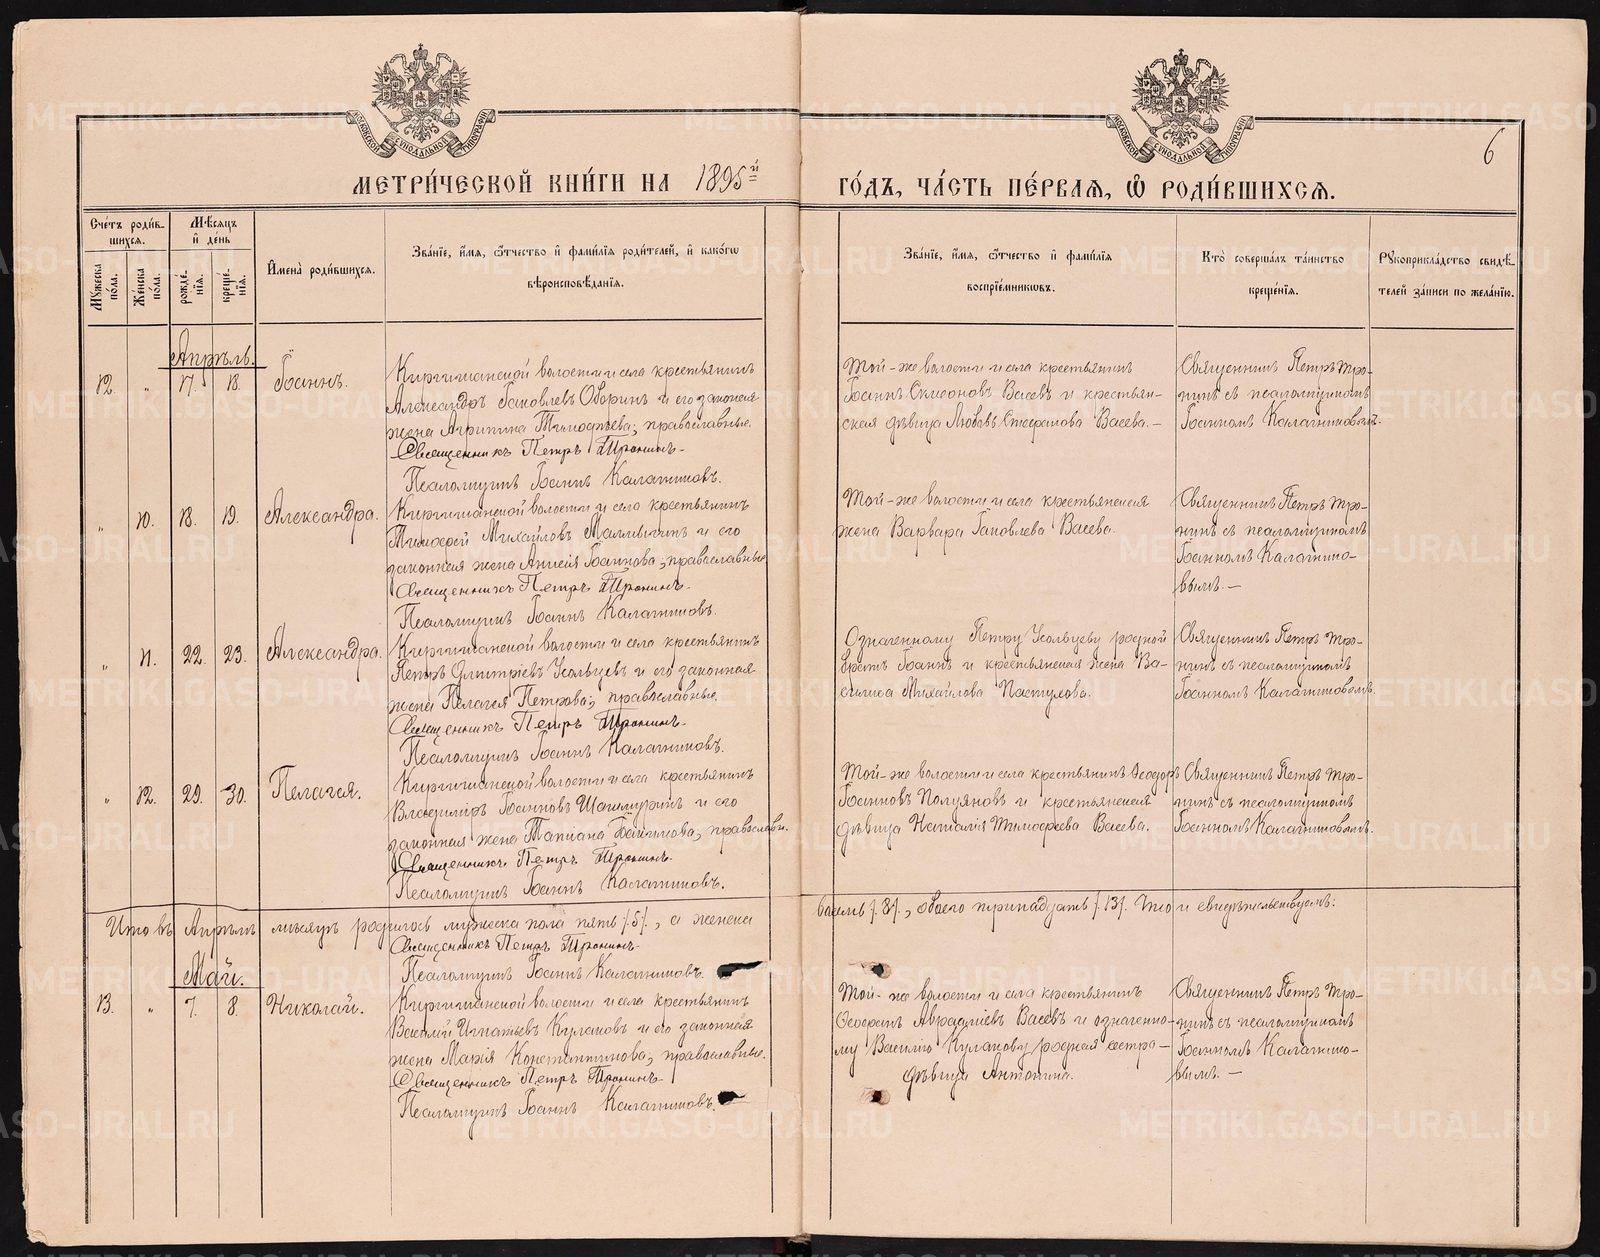 МЕТРИ́ЧЕСКОЙ КНИ́ГИ НА 1895й ГО́ДЪ, ЧА́СТЬ ПЕ́РВАЯ, Ѽ РОДИ́ВШИХСѦ.
6
Сче́тъ роди́в-
шихся.
Мꙋжеска по́ла.
Же́нска по́ла.
Мѣ́сѧцъ и де́нь
рожде́нїѧ.
креще́нїѧ.
И҆мена̀ роди́вшихсѧ.
Зва́нїе, и҆́мѧ, ѻ҆́тчество и҆ фами́лїѧ роди́телей, и҆ како́гѡ
вѣроисповѣ́данїѧ.
Зва́нїе, и҆́мѧ, ѻ҆́тчество и҆ фами́лїѧ
воспрїе́мникѡвъ.
Кто̀ соверша́лъ та́инство
креще́нїѧ.
Рꙋкоприкла́дство свидѣ́-
телей за́писи по жела́нїю.
Апрѣль.
12. " 17. 18. Іоаннъ.
Киргишанской волости и села крестьянинъ
Александръ Іаковлевъ Оборинъ и его законная
жена Агрипина Тимофѣева, православные.
Священникъ Петръ Тронинъ.
Псаломщикъ Іоаннъ Калашниковъ.
Той-же волости и села крестьянинъ
Іоаннъ Симеоновъ Васевъ и крестьян-
ская дѣвица Любовь Стефанова Васева.-
Священникъ Петръ Тро-
нинъ съ псаломщикомъ
Іоанномъ Калашниковымъ.
" 10. 18. 19. Александра.
Киргишанской волости и села крестьянинъ
Тимофей Михайловъ и его
законная жена Анисія Іоаннова, православные
Священникъ Петръ Тронинъ.
Псаломщикъ Іоаннъ Калашниковъ.
Той-же волости и села крестьянская
жена Варвара Іаковлева Васева.
Священникъ Петръ Тро-
нинъ съ псаломщикомъ
Іоанномъ Калашнико-
вымъ.-
" 11. 22. 23. Александра.
Киргишанской волости и села крестьянинъ
Петръ Димитріевъ Усольцевъ и его законная
жена Пелагея Петрова, православные.
Священникъ Петръ Тронинъ.
Псаломщикъ Іоаннъ Калашниковъ.
Означенному Петру Усольцеву родной
братъ Іоаннъ и крестьянская жена Ва-
силиса Михайлова Пастухова.
Священникъ Петръ Тро-
нинъ съ псаломщикомъ
Іоанномъ Калашниковымъ.
" 12. 29. 30. Пелагея.
Киргишанской волости и села крестьянинъ
Владиміръ Іоанновъ и его
законная жена Татіана православн.
Священникъ Петръ Тронинъ.
Псаломщикъ Іоаннъ Калашниковъ.
Той-же волости и села крестьянинъ Ѳеодоръ
Іоанновъ Полуяновъ и крестьянская
дѣвица Наталія Тимофеева Васева.
Священникъ Петръ Тро-
нинъ съ псаломщикомъ
Іоанномъ Калашниковымъ.
Итого въ Апрѣлѣ мѣсяцѣ родилось мужеска пола пять /5/, а женска восемь /8/, обоего тринадцать /13/. Что и свидѣтельствуемъ:
Священникъ Петръ Тронинъ.
Псаломщикъ Іоаннъ Калашниковъ.
Май.
13. " 7. 8. Николай.
Киргишанской волости и села крестьянинъ
Василій Игнатьевъ Кулаковъ и его законная
жена Марія Константинова, православные.
Священникъ Петръ Тронинъ.
Псаломщикъ Іоаннъ Калашниковъ.
Той-же волости и села крестьянинъ
Авраамiевъ Васевъ и означенно-
му Василію Кулакову родная сестра-
дѣвица Антонина.
Священникъ Петръ Тро-
нинъ съ псаломщикомъ
Іоанномъ Калашнико-
вымъ.-
METRIKI.GASO-URAL.RU